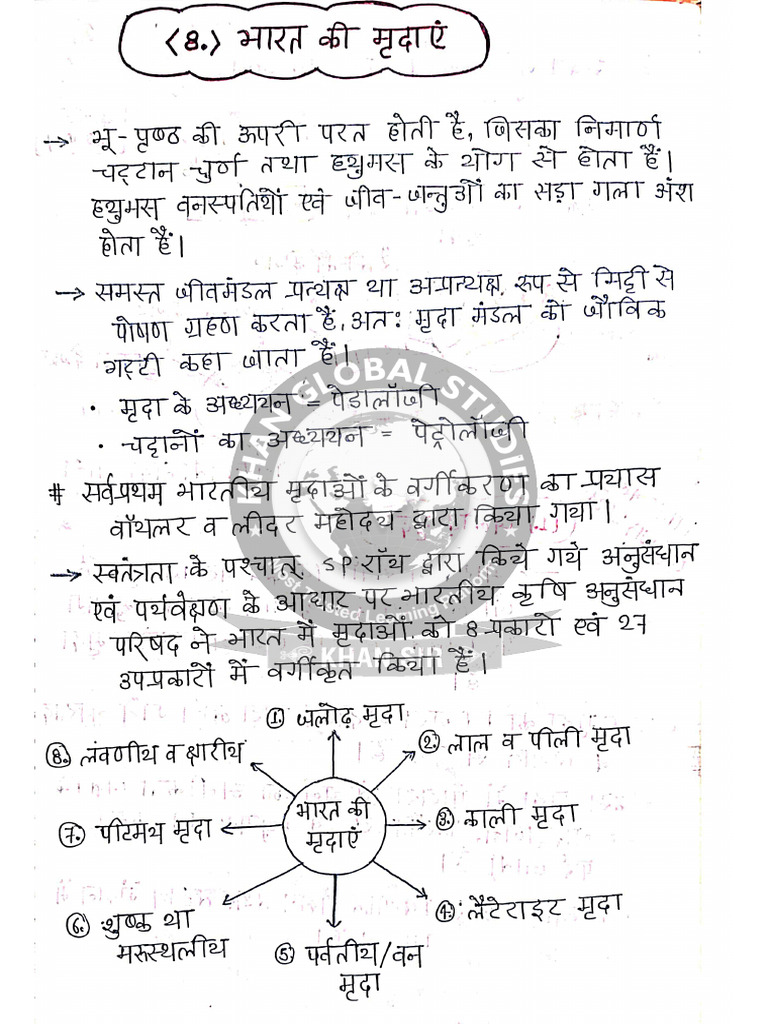 <8.> भारत की मृदाएं
→ भू-पृष्ठ की ऊपरी परत होती है, जिसका निमार्ण
चट्टान चुर्ण तथा ह्युमस के योग से होता हैं।
ह्युमस वनस्पतियों एवं जीव-जन्तुओं का सड़ा गला अंश
होता हैं।
→ समस्त जीवमंडल प्रत्यक्ष या अप्रत्यक्ष रूप से मिट्टी से
पोषण ग्रहण करता हैं, अतः मृदा मंडल को जैविक
गट्टी कहा जाता हैं।
• मृदा के अध्ययन = पेडालॉजी
• चट्टानों का अध्ययन = पेट्रोलॉजी
# सर्वप्रथम भारतीय मृदाओं के वर्गीकरण का प्रयास
वॉयलर व लीदर महोदय द्वारा किया गया।
→ स्वतंत्रता के पश्चात् SP रॉय द्वारा किये गये अनुसंधान
एवं पर्यवेक्षण के आधार पर भारतीय कृषि अनुसंधान
परिषद ने भारत में मृदाओं को 8 प्रकारो एवं 27
उपप्रकारों में वर्गीकृत किया हैं।
① जलोढ़ मृदा
② लाल व पीली मृदा
③ काली मृदा
④ लैटेराइट मृदा
⑤ पर्वतीय/वन
मृदा
⑥ शुष्क या
मरूस्थलीय
⑦ पीटमय मृदा
⑧ लंवणीय व क्षारीय
भारत की
मृदाएं
KHAN GLOBAL STUDIES
Most Trusted Learning Platform
KHAN SIR